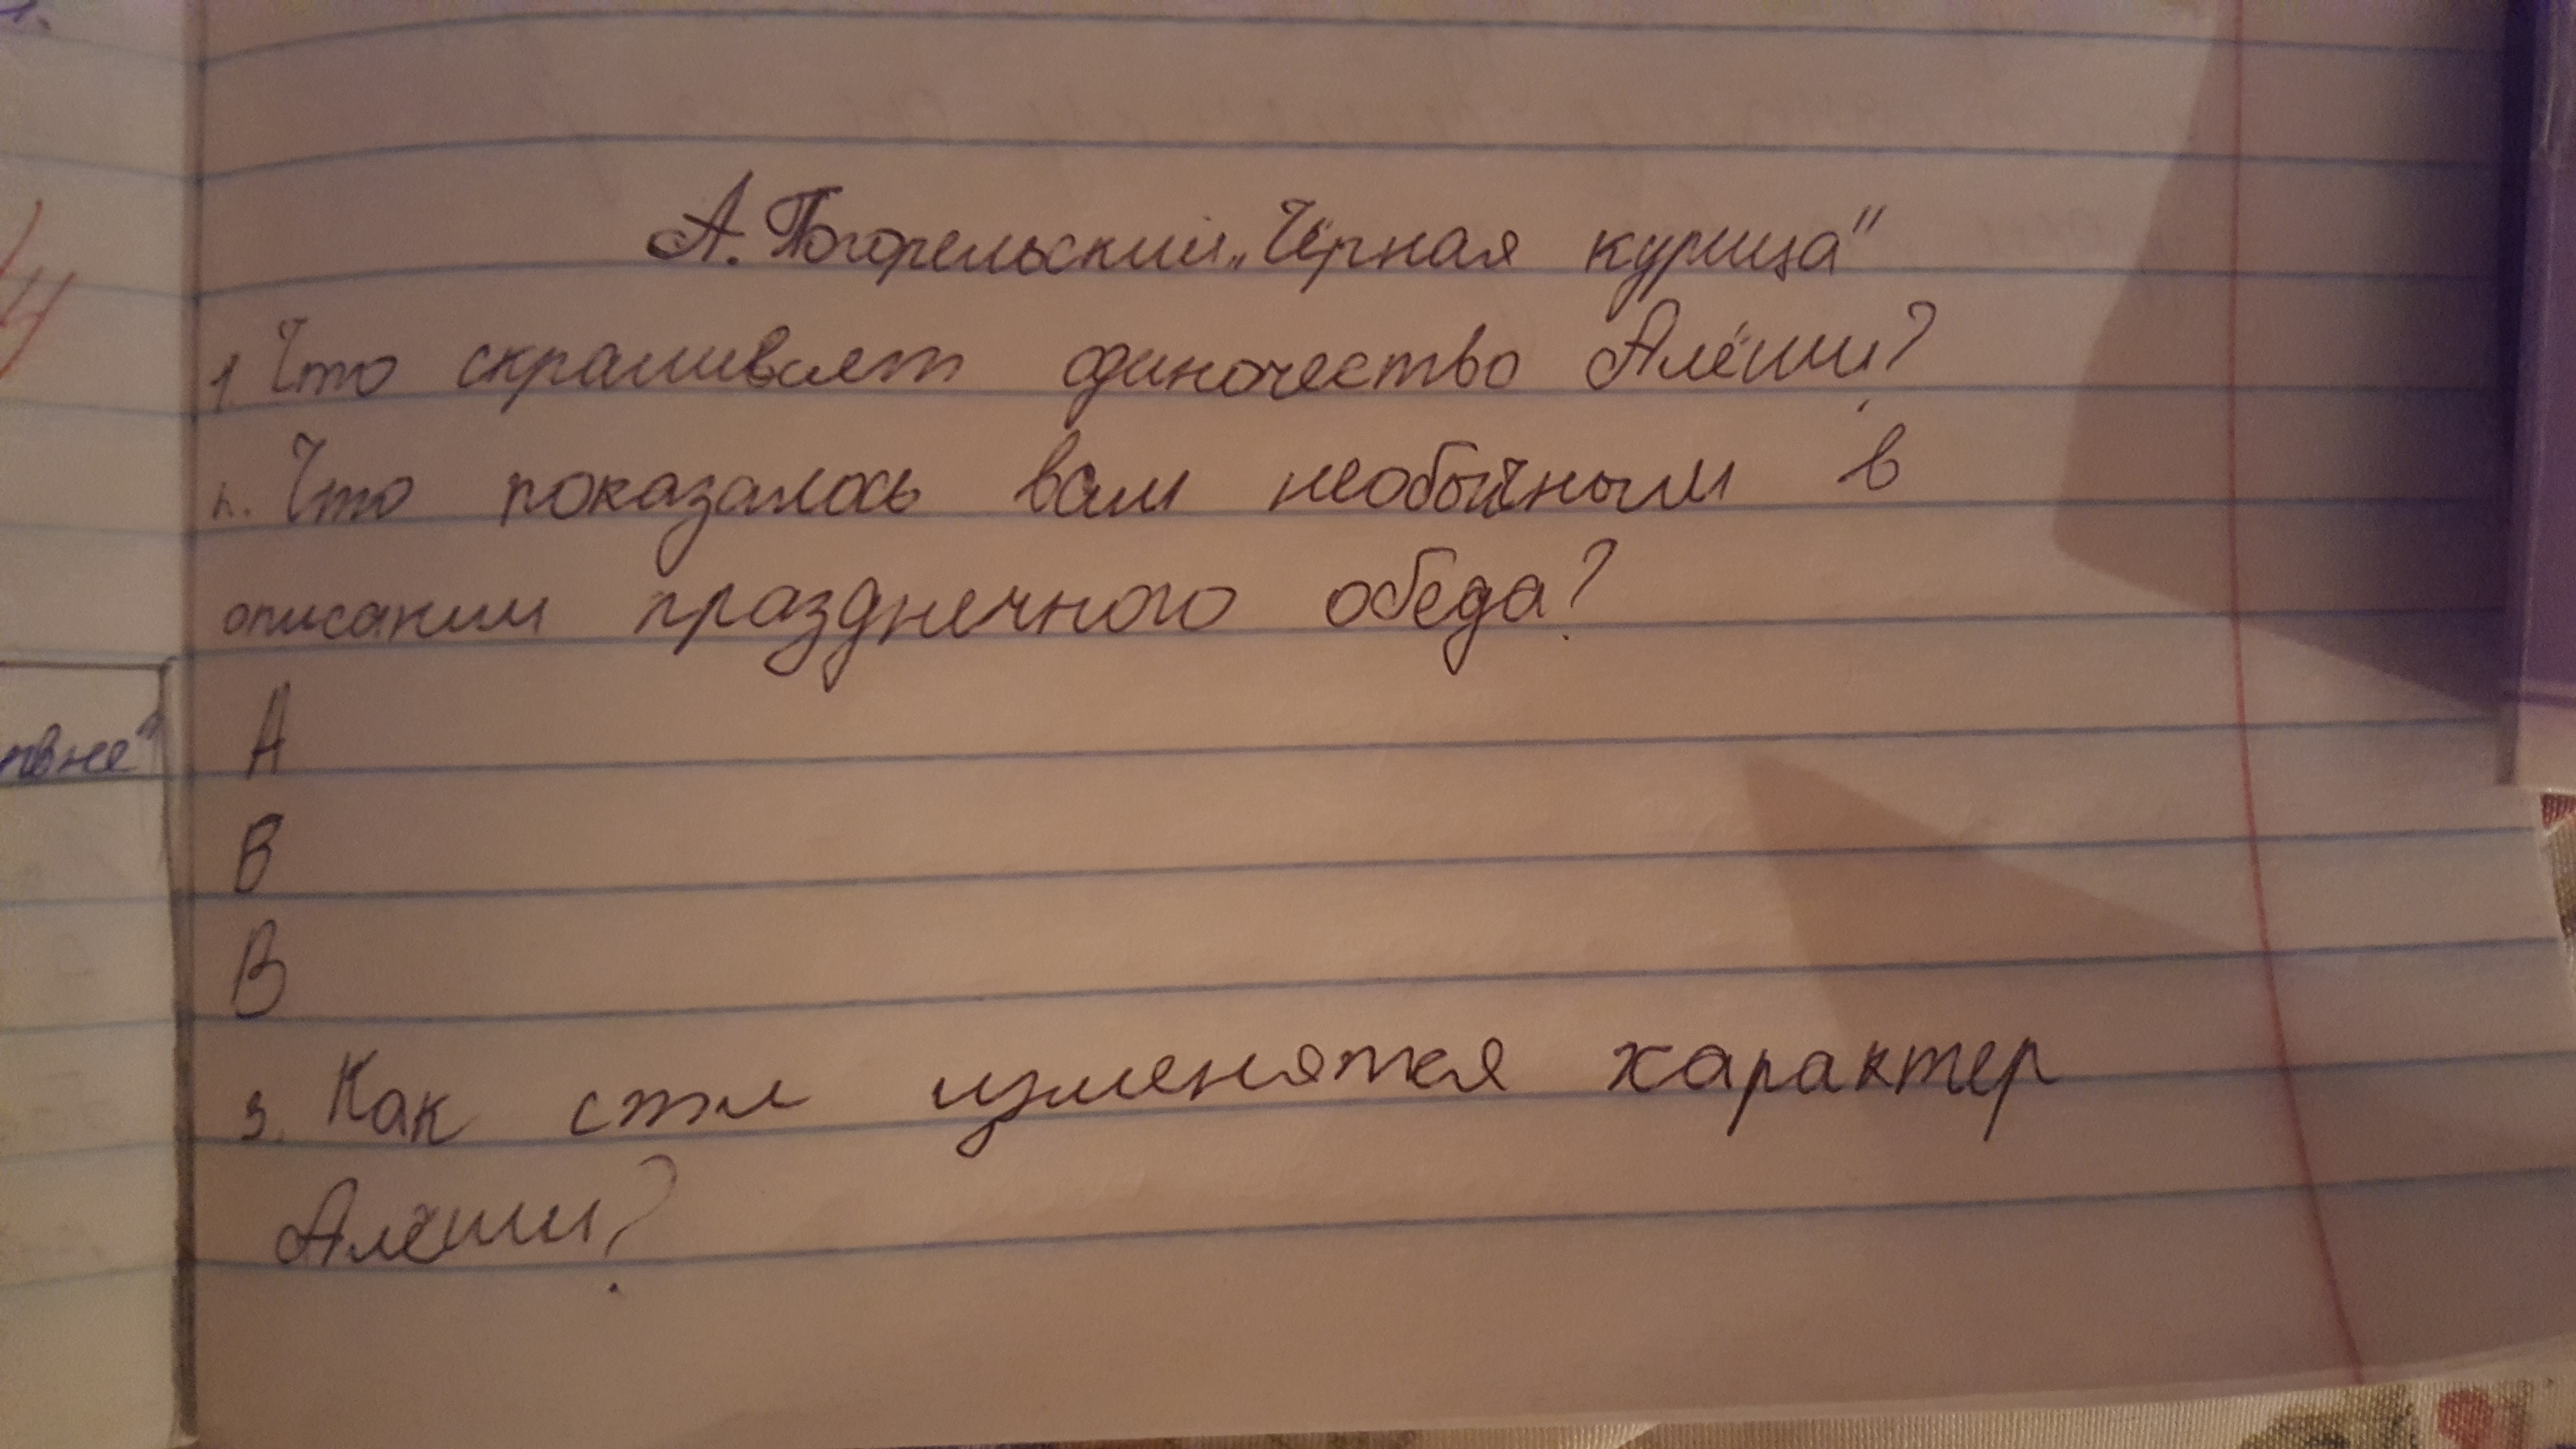 А. Погорельский „Чёрная курица"
1. Что скрашивает одиночество Алёши?
2. Что показалось вам необычным в
описании праздничного обеда?
А
В
В
3. Как стал изменятся характер
Алёши?